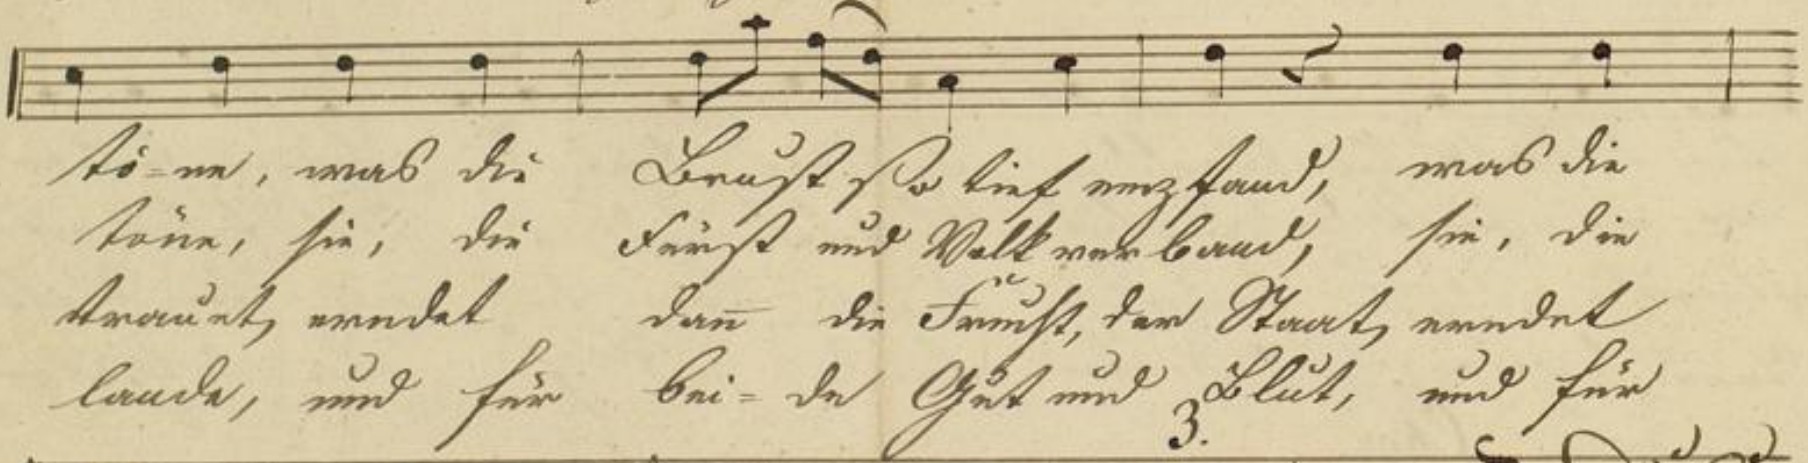 tö-ne, was die Brust so tief empfand, was die
töne, sie, die Fürst und Volk verband, sie, die
trauet, erndet dan̄ die Frucht, der Staat, erndet
lande, und für bei-de Gut und Blut, und für
3.